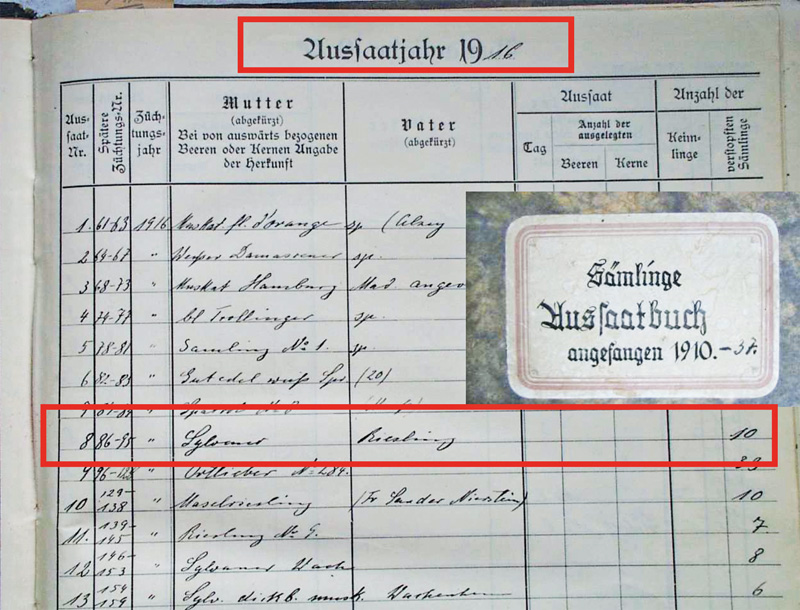 Aussaatjahr 1916.
Aus-
saat-
Nr.
Spätere
Züchtungs-Nr.
Züch-
tungs-
jahr
Mutter
(abgekürzt)
Bei von auswärts bezogenen
Beeren oder Kernen Angabe
der Herkunft
Vater
(abgekürzt)
Aussaat
Tag
Anzahl der
ausgelegten
Beeren Kerne
Anzahl der
Keim-
linge
verstopften
Sämlinge
1. 61-63 1916 Muskat fl. d'orange sp. (Alzey
2 64-67 " Weisser Damascener sp.
3 68-73 " Muskat Hamburg Mad. angev
4 74-77 " bl Trollinger sp.
5 78-81 " Samling No 1. sp.
6 82-83 " Gutedel (20)
8 86-95 " Sylvaner Riesling 10
9 Ortlieber No 284.
10 129-138 " Moselriesling (Fr Sander Nierstein) 10
11. 139-145 " Riesling No 9. 7
12 146-153 " Sylvaner 8
13 154-159 " Sylv. dickb. 6
Sämlinge
Aussaatbuch
angefangen 1910.-37.